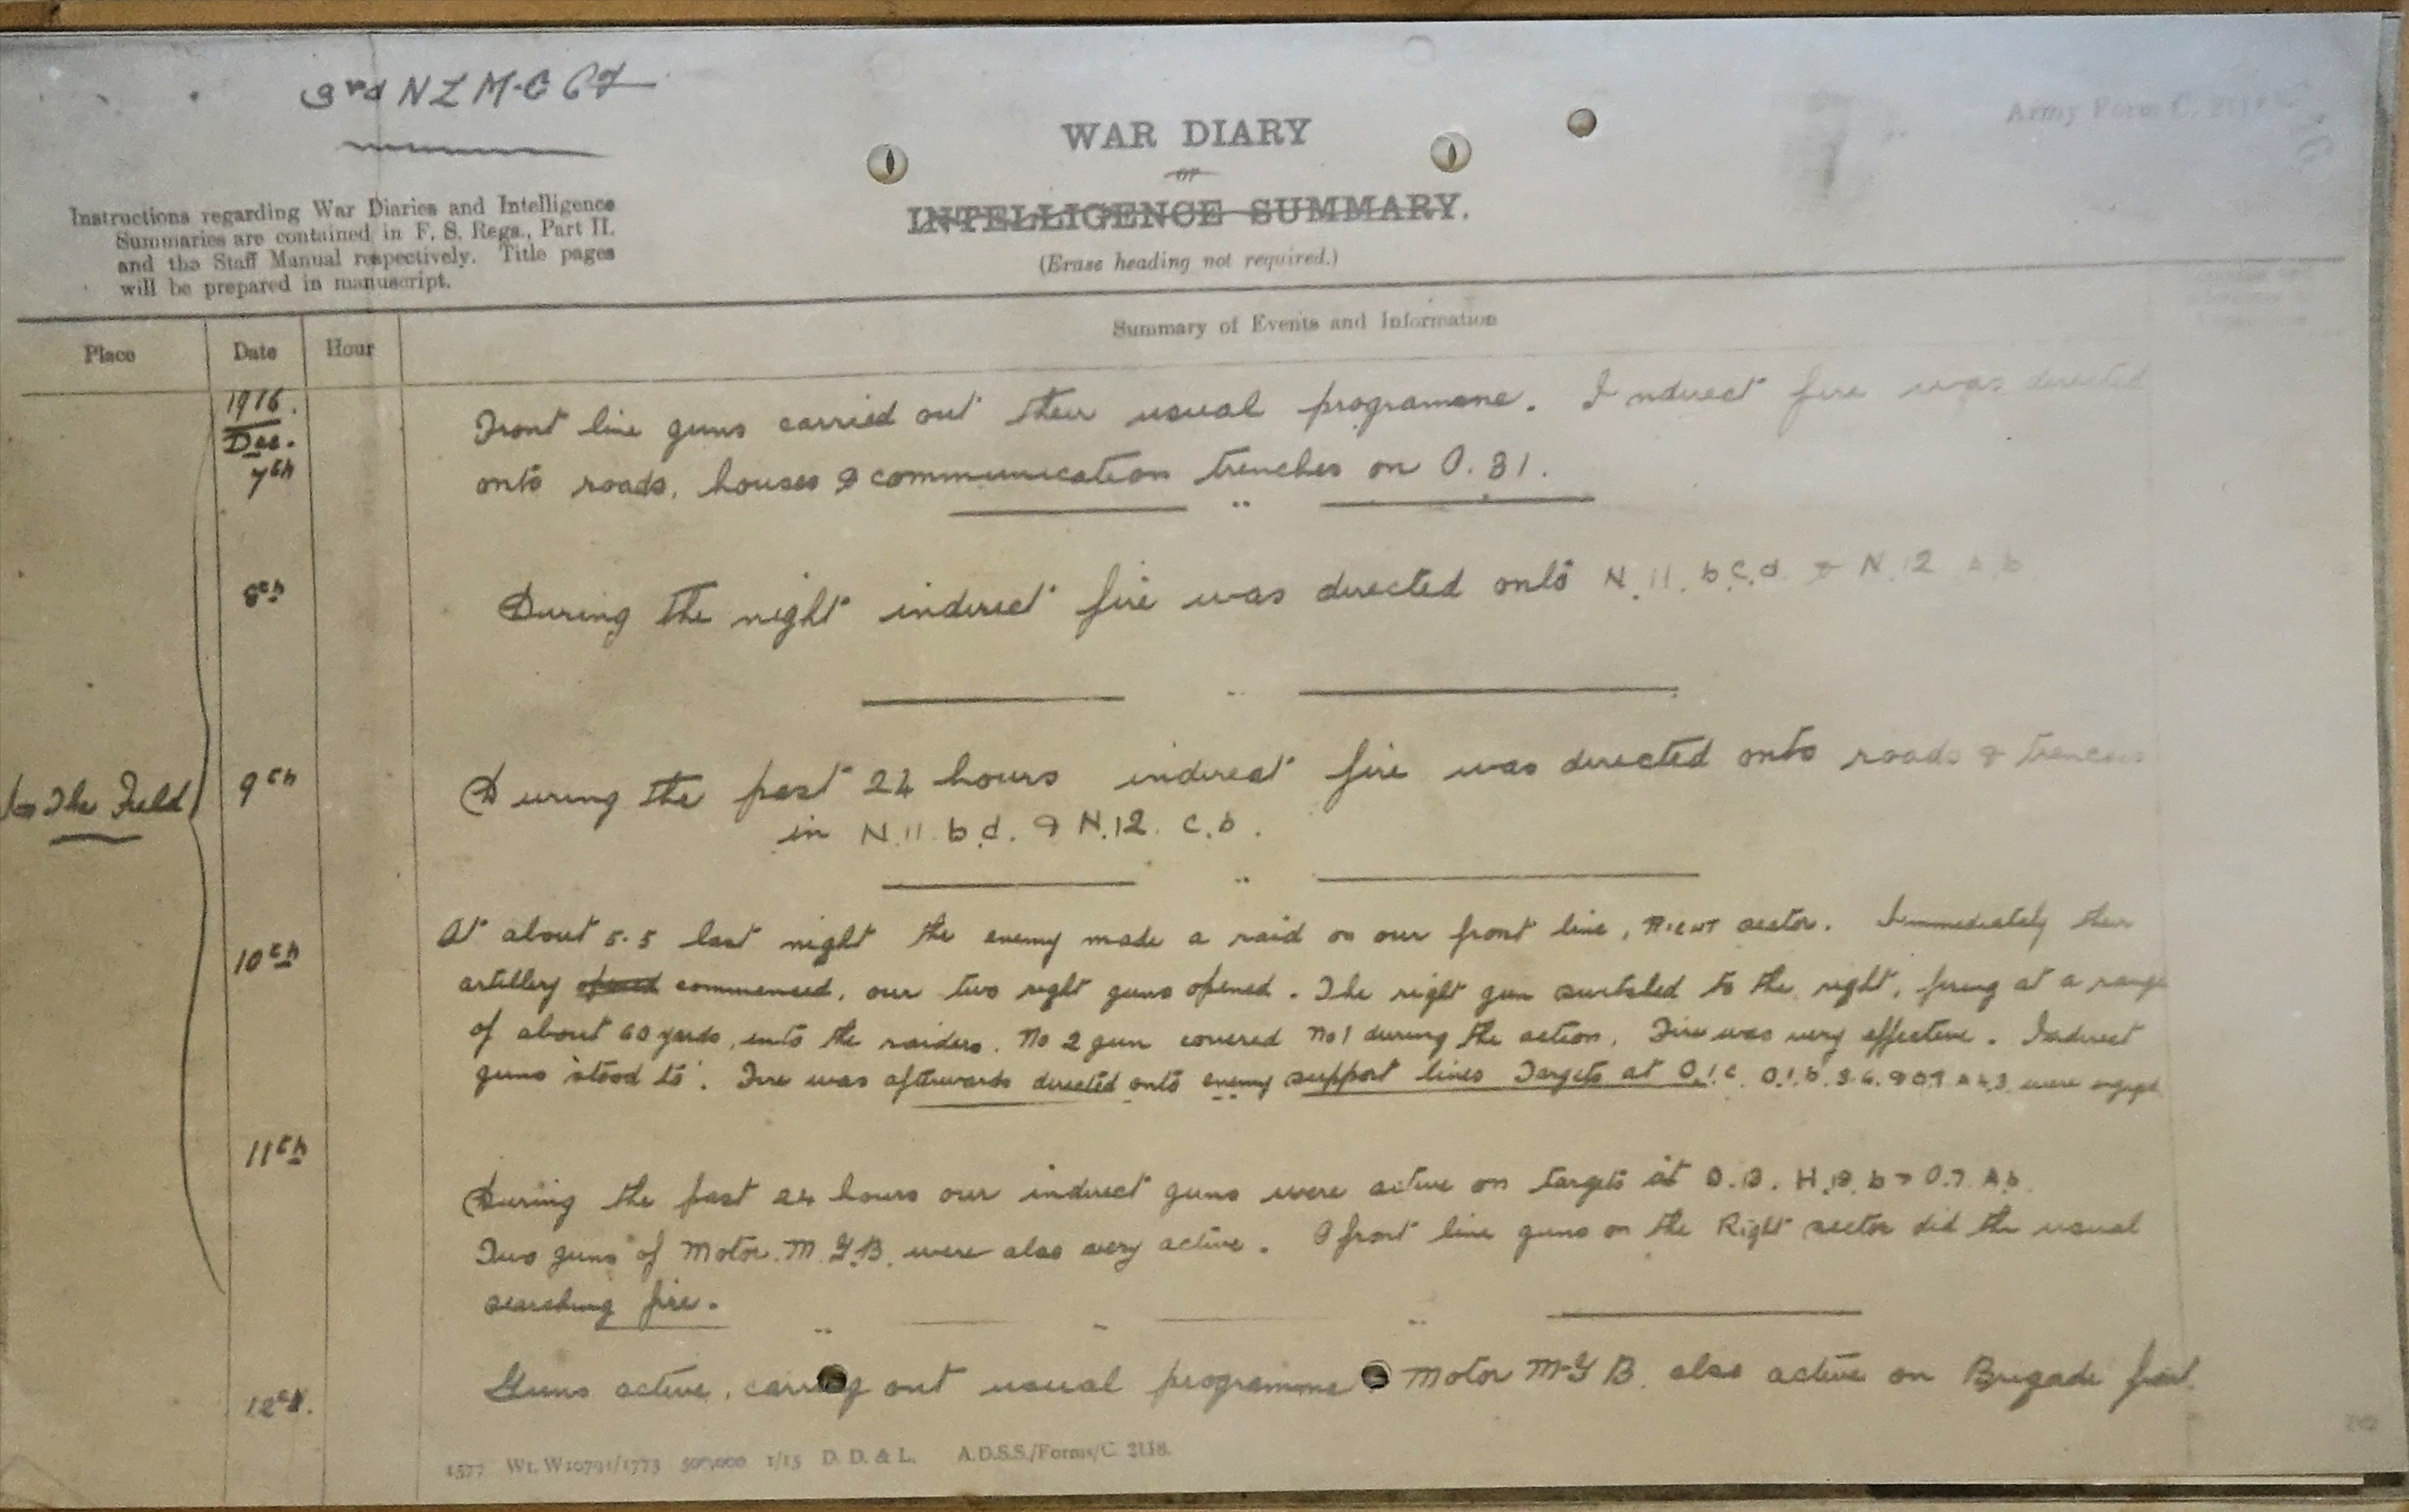 3rd NZ M.G Coy
Army Form C. 2118
WAR DIARY
or
INTELLIGENCE SUMMARY.
(Erase heading not required.)
Instructions regarding War Diaries and Intelligence
Summaries are contained in F. S. Regs., Part II.
and the Staff Manual respectively. Title pages
will be prepared in manuscript.
Place Date Hour
Summary of Events and Information
1916.
Dec.
7th
Front line guns carried out their usual programme. Indirect fire was directed
onto roads, houses & communication trenches on O. 31.
8th
During the night indirect fire was directed onto N. 11. b.c.d. & N. 12 A.b
In The Field
9th
During the past 24 hours indirect fire was directed onto roads & trenches
in N. 11. b.d. & N.12. c.b.
10th
At about 5.5 last night the enemy made a raid on our front line, RIGHT sector. Immediately their
artillery opened commenced, our two right guns opened. The right gun switched to the right, firing at a range
of about 60 yards, into the raiders. No 2 gun covered No 1 during the action. Fire was very effective. Indirect
guns 'stood to'. Fire was afterwards directed onto enemy support lines Targets at O.1.c. O.1.b. were
11th
During the past 24 hours our indirect guns were active on targets at O.7. A.b.
Two guns of Motor. M.G.B. were also very active. front line guns on the Right sector did the usual
searching fire.
12th.
Guns active, carrying out usual programme Motor M-G B. also active on Brigade front.
1577 Wt. W10791/1773 500,000 1/15 D. D. & L. A.D.S.S./Forms/C. 2118.